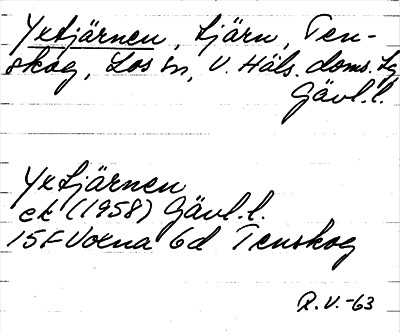 Yxtjärnen, tjärn, Ten-
skog, Los sn, V. Häls. doms. lg
Gävl. l.
Yxtjärnen
ek (1958) Gävl. l.
15F Voxna 6d Tenskog
R.V.-63